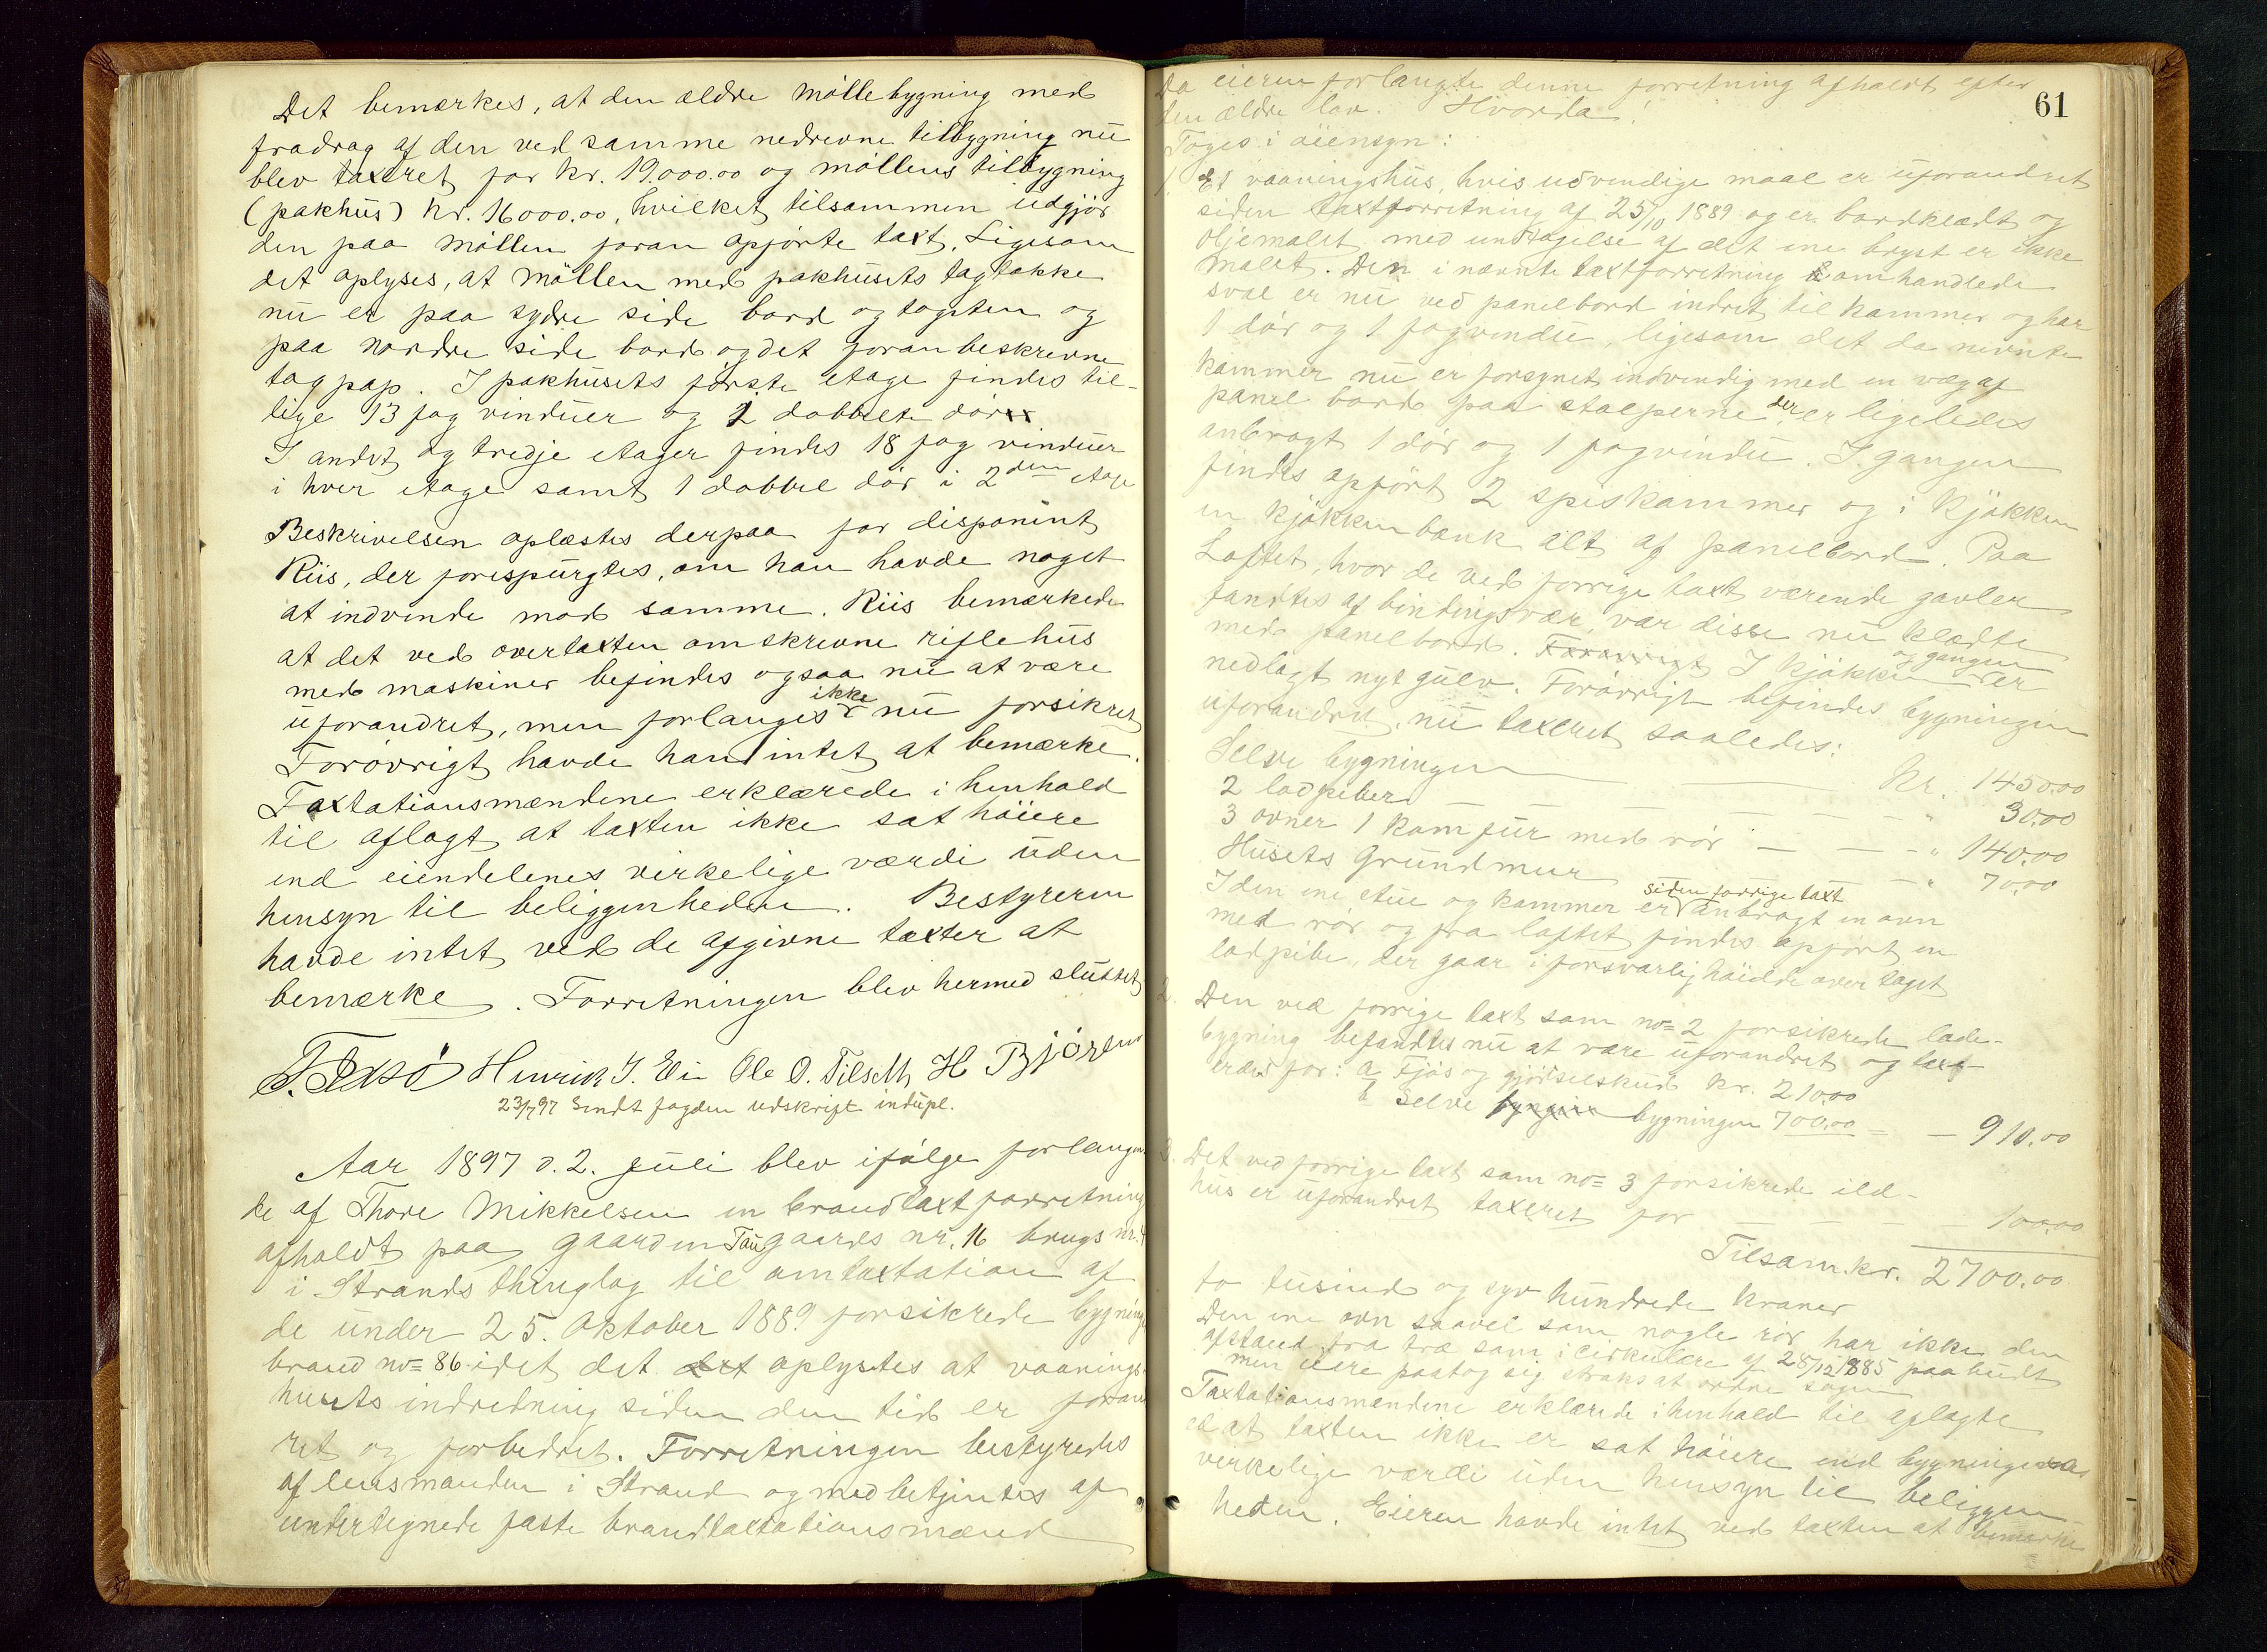 Det bemærkes, at den ældre möllebygning med
fradrag af den ved samme nedrevne tilbygning nu
blev taxeret for kr. 19.000.00 og möllens tilbygning
(pakhus) kr. 16000.00, hvilket tilsammen udgjör
den paa möllen foran opförte taxt. Ligesom
det oplyses, at möllen med pakhusets tagtække
nu er paa sydre side bord og tagsten og
paa nordre side bord og det foran beskrevne
tagpap. I pakhusets förste etage findes til-
lige 13 fag vinduer og 2 dobbelte dör
I andet og tredje etager findes 18 fag vinduer
i hver etage samt 1 dobbel dör i 2den etage
Beskrivelsen oplæstes derpaa for disponent
Riis, der forespurgtes, om han havde noget
at indvende mod samme. Riis bemærkede
at det ved overtaxten omskrevne riflehus
med maskiner befindes ogsaa nu at være
uforandret, men forlanges ikke nu forsikret
Forövrigt havde han intet at bemærke.
Taxtationsmændene erklærede i henhold
til aflagt at taxten ikke sat höiere
end eiendelenes virkelige værdi uden
hensyn til beliggenheden. Bestyreren
havde intet ved de afgivne taxter at
bemærke. Forretningen blev hermed sluttet
Henrik J. Ole O. H Björ
23/7 97 Sendt fogden udskrift in dupl.
Aar 1897 d. 2. Juli blev ifölge forlangen-
de af Thore Mikkelsen en brandtaxtforretning
afholdt paa gaarden Tau gaards nr. 16 brugs nr.
i Strands thinglag til omtaxtation af
de under 25. Oktober 1889 forsikrede bygning
brand no= 86 idet det oplystes at vaanings-
husets indredning siden den tid er foran
ret og forbedret. Forretningen bestyredes
af lensmanden i Strand og medbetjentes af
undertegnede faste brandtaxtationsmænd
61
Da eieren forlangte denne forretning afholdt efter
den ældre lov. Hvorda!
Toges i öiensyn:
1. Et vaaningshus, hvis udvendige maal er uforandret
siden taxtforretning af 25/10 1889 og er bordklædt og
oljemalet med undtagelse af det ene bryst er ikke
malet. Den i nævnte taxtforretning omhandlede
sval er nu ved panelbord indret til kammer og har
1 dör og 1 fag vindu, ligesom det da nevnte
kammer nu er forsynet indvendig med en væg af
panel bord paa stolperne der er ligeledes
anbragt 1 dör og 1 fag vindu. I gangen
findes opfört 2 spiskammer og i kjökken
en kjökkenbænk alt af panelbord. Paa
Loftet, hvor de ved forrige taxt værende gavler
fandtes af bindingsvær, var disse nu klædte
med panelbord. Forövrigt I kjökken og gangen er
nedlagt nyt gulv. Forövrigt befindes bygningen
uforandret, nu taxeret saaledes:
Selve bygningen — Kr. 1450.00
2 lodpiber — — — — " 30.00
3 ovner 1 komfur med rör — — " 140.00
Husets Grundmur — " 70.00
I den ene stue og kammer er siden forrige taxt anbragt en ovn
med rör og fra loftet findes opfört en
lodpibe, der gaar i forsvarlig höide over taget
2. Den ved forrige taxt som no= 2 forsikrede lade-
bygning befandtes nu at være uforandret og tax-
eret for: a Fjös og gjödselskur kr. 210.00
b Selve bygningen 700.00 = — 910.00
3. Det ved forrige taxt som no= 3 forsikrede ild-
hus er uforandret taxeret for — — — 100.00
Tilsam. kr. 2700.00
to tusind og syv hundrede kroner
Den ene ovn saavel som nogle rör har ikke den
afstand fra træ som i cirkulære af 28/12 1885 paabudt
men eiere paatog sig straks at ordne sagen
Taxtationsmændene erklærede i henhold til aflagte
ed at taxten ikke er sat höiere end bygningernes
virkelige værdi uden hensyn til beliggen-
heden. Eieren havde intet ved taxten at bemærke